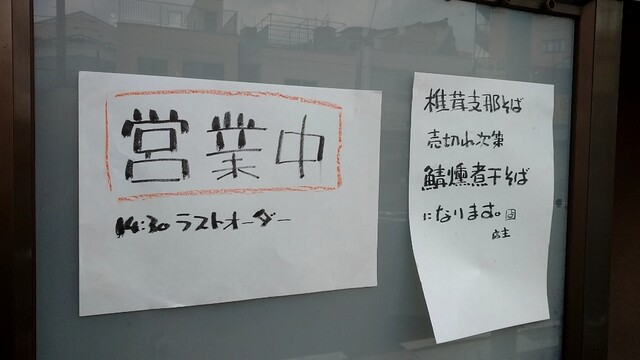 営業中
14:30 ラストオーダー
椎茸支那そば
売切れ次第
鯖燻煮干そば
になります。
店主